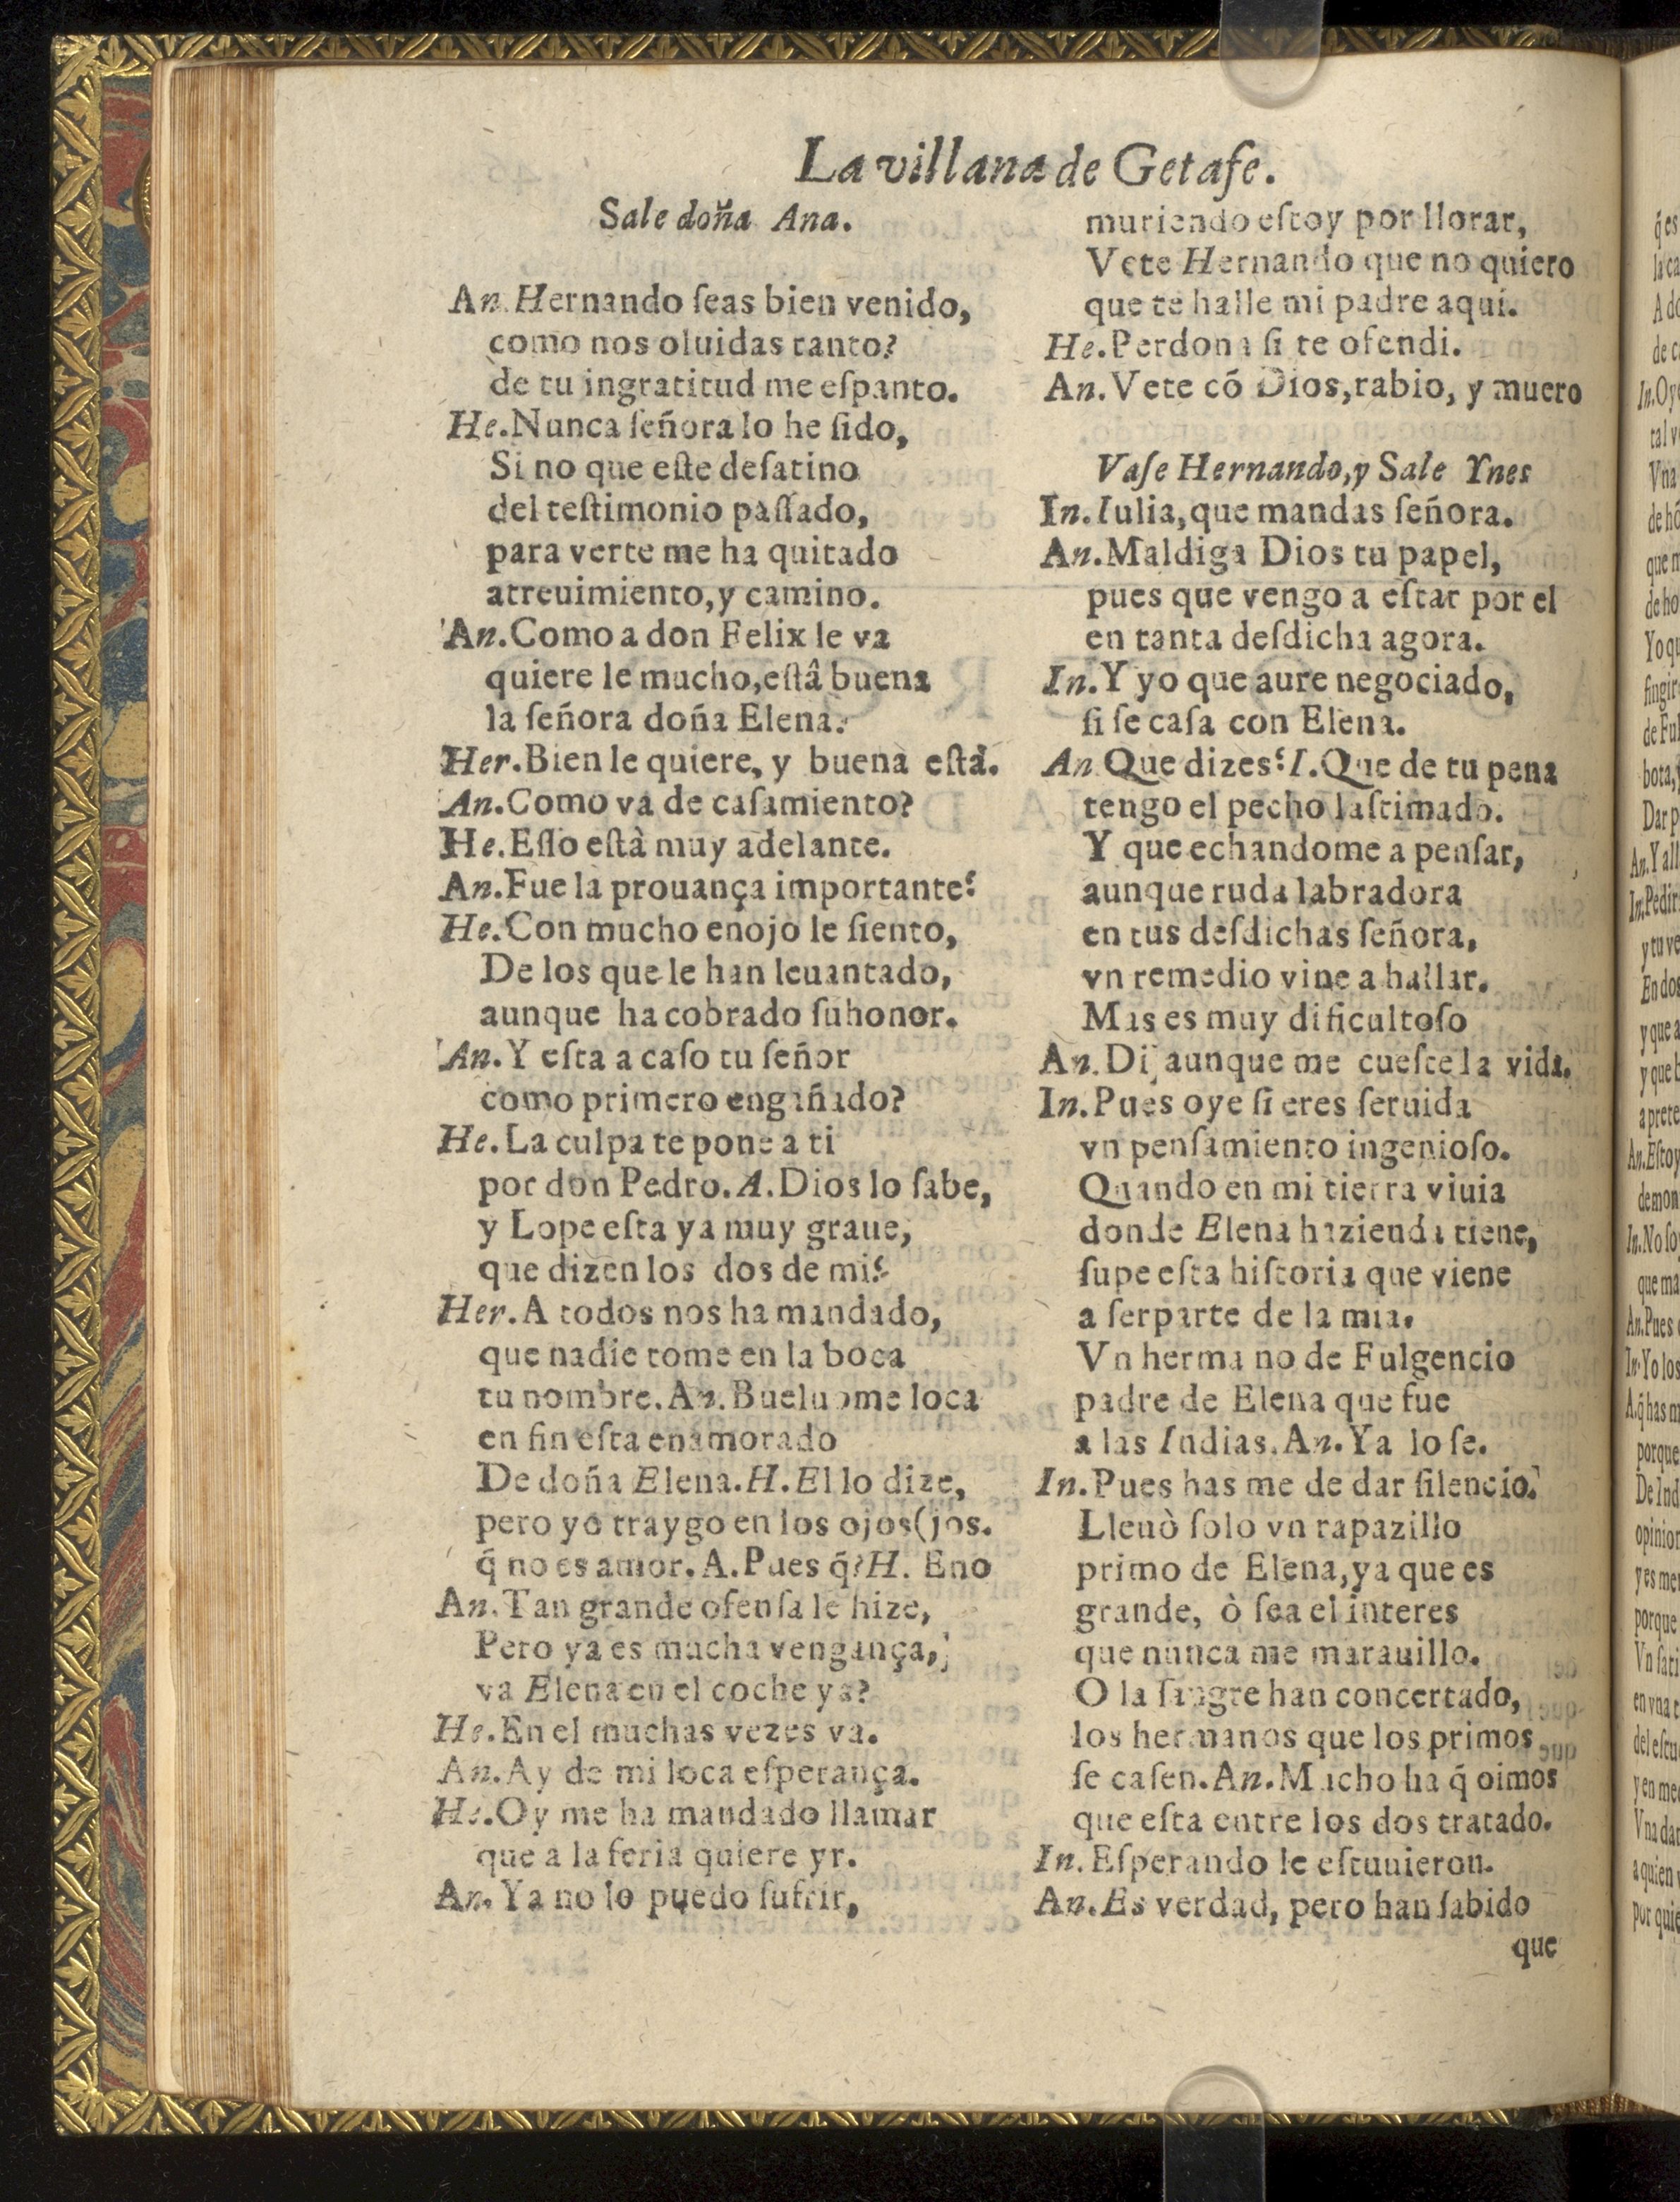 La villana de Getafe.
Sale doña Ana.
An. Hernando ſeas bien venido,
como nos oluidas tanto?
de tu ingratitud me eſpanto.
He. Nunca ſeñora lo he ſido,
Si no que eſte deſatino
del teſtimonio paſſado,
para verte me ha quitado
atreuimiento, y camino.
An. Como a don Felix le va
quiere le mucho, eſtâ buena
la ſeñora doña Elena?
Her. Bien le quiere, y buena eſtà.
An. Como va de caſamiento?
He. Eſſo eſtà muy adelante.
An. Fue la prouança importante?
He. Con mucho enojo le ſiento,
De los que le han leuantado,
aunque ha cobrado ſuhonor.
An. Y eſta a caſo tu ſeñor
como primero engañado?
He. La culpa te pone a ti
por don Pedro. A. Dios lo ſabe,
y Lope eſta ya muy graue,
que dizen los dos de mi?
Her. A todos nos ha mandado,
que nadie tome en la boca
tu nombre. An. Bueluome loca
en fin eſta enamorado
De doña Elena. H. El lo dize,
pero yo traygo en los ojos (jos.
q̃ no es amor. A. Pues q̃? H. Eno
An. Tan grande ofenſa le hize,
Pero ya es mucha vengança,
va Elena en el coche ya?
He. En el muchas vezes va.
An. Ay de mi loca eſperança.
He. Oy me ha mandado llamar
que a la feria quiere yr.
An. Ya no lo puedo ſufrir,
muriendo eſtoy por llorar,
Vete Hernando que no quiero
que te halle mi padre aquí.
He. Perdona ſi te ofendi.
An. Vete cõ Dios, rabio, y muero
Vaſe Hernando, y Sale Ynes
In. Iulia, que mandas ſeñora.
An. Maldiga Dios tu papel,
pues que vengo a eſtar por el
en tanta deſdicha agora.
In. Y yo que aure negociado,
ſi ſe caſa con Elena.
An Que dizes? I. Que de tu pena
tengo el pecho laſtimado.
Y que echandome a penſar,
aunque ruda labradora
en tus deſdichas ſeñora,
vn remedio vine a hallar.
Mas es muy dificultoſo
An. Di aunque me cueſte la vida.
In. Pues oye ſi eres ſeruida
vn penſamiento ingenioſo.
Quando en mi tierra viuia
donde Elena hazienda tiene,
ſupe eſta hiſtoria que viene
a ſerparte de la mia.
Vn herma no de Fulgencio
padre de Elena que fue
a las Indias. An. Ya lo ſe.
In. Pues has me de dar ſilencio.
Lleuò ſolo vn rapazillo
primo de Elena, ya que es
grande, ò ſea el interes
que nunca me marauillo.
O la ſangre han concertado,
los hermanos que los primos
ſe caſen. An. Mucho ha q̃ oimos
que eſta entre los dos tratado.
In. Eſperando le eſtuuieron.
An. Es verdad, pero han ſabido
que